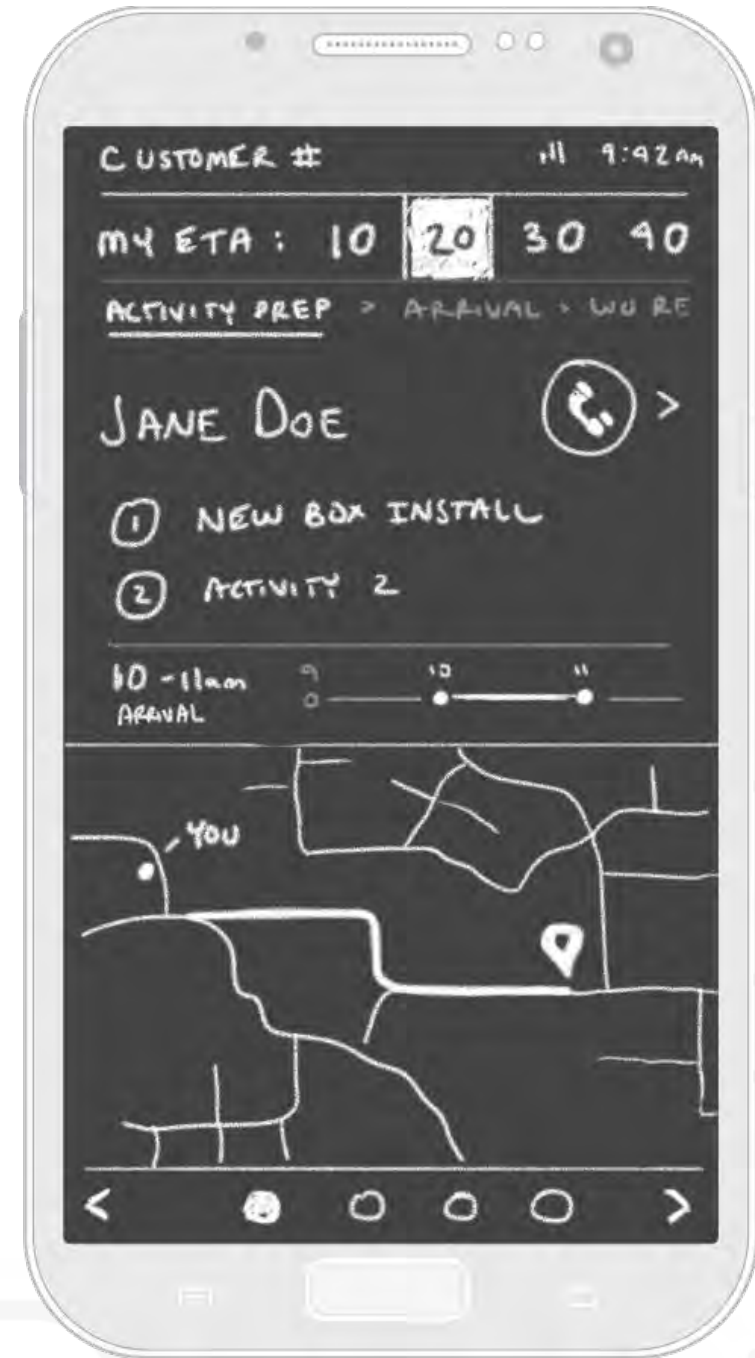 CUSTOMER # 9:42AM
MY ETA: 10 20 30 40
ACTIVITY PREP > ARRIVAL > WO RE
JANE DOE >
1 NEW BOX INSTALL
2 ACTIVITY 2
10-11am 9 10 11
ARRIVAL
YOU
< >